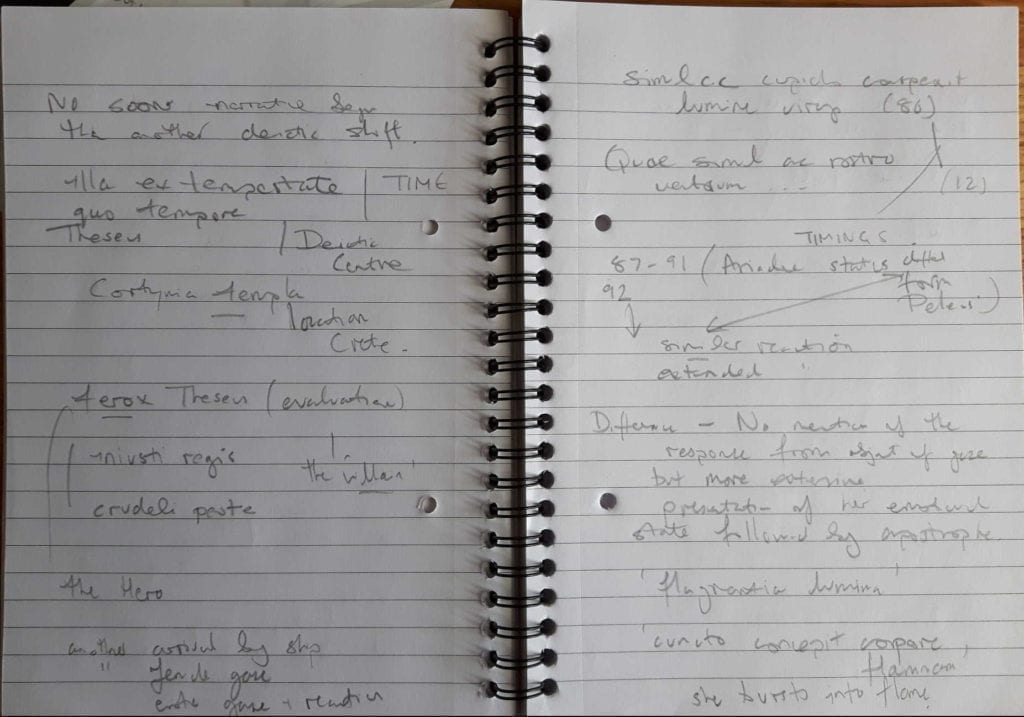 No sooner narrative
the another deictic shift.
illa ex tempestate | TIME
quo tempore
Theseu | Deictic
Centre
Cortynia templa
location
Crete.
ferox Theseu (evaluation)
iniusti regis
'the villain'
crudeli peste
the Hero
another arrival by ship
" female gaze
erotic gaze + reaction
simul ac cupido conspexit
lumine virgo (86)
Quae simul ac rostro
ventosum .... (12)
TIMINGS
87-91 (Ariadne status differs
from
92 Peleus')
similar reaction
extended "
Difference - No mention of the
response from object of gaze
but more extensive
presentation of her emotional
state followed by apostrophe.
'flagrantia lumina'
'cuncto concepit corpore
flammam
she bursts into flame